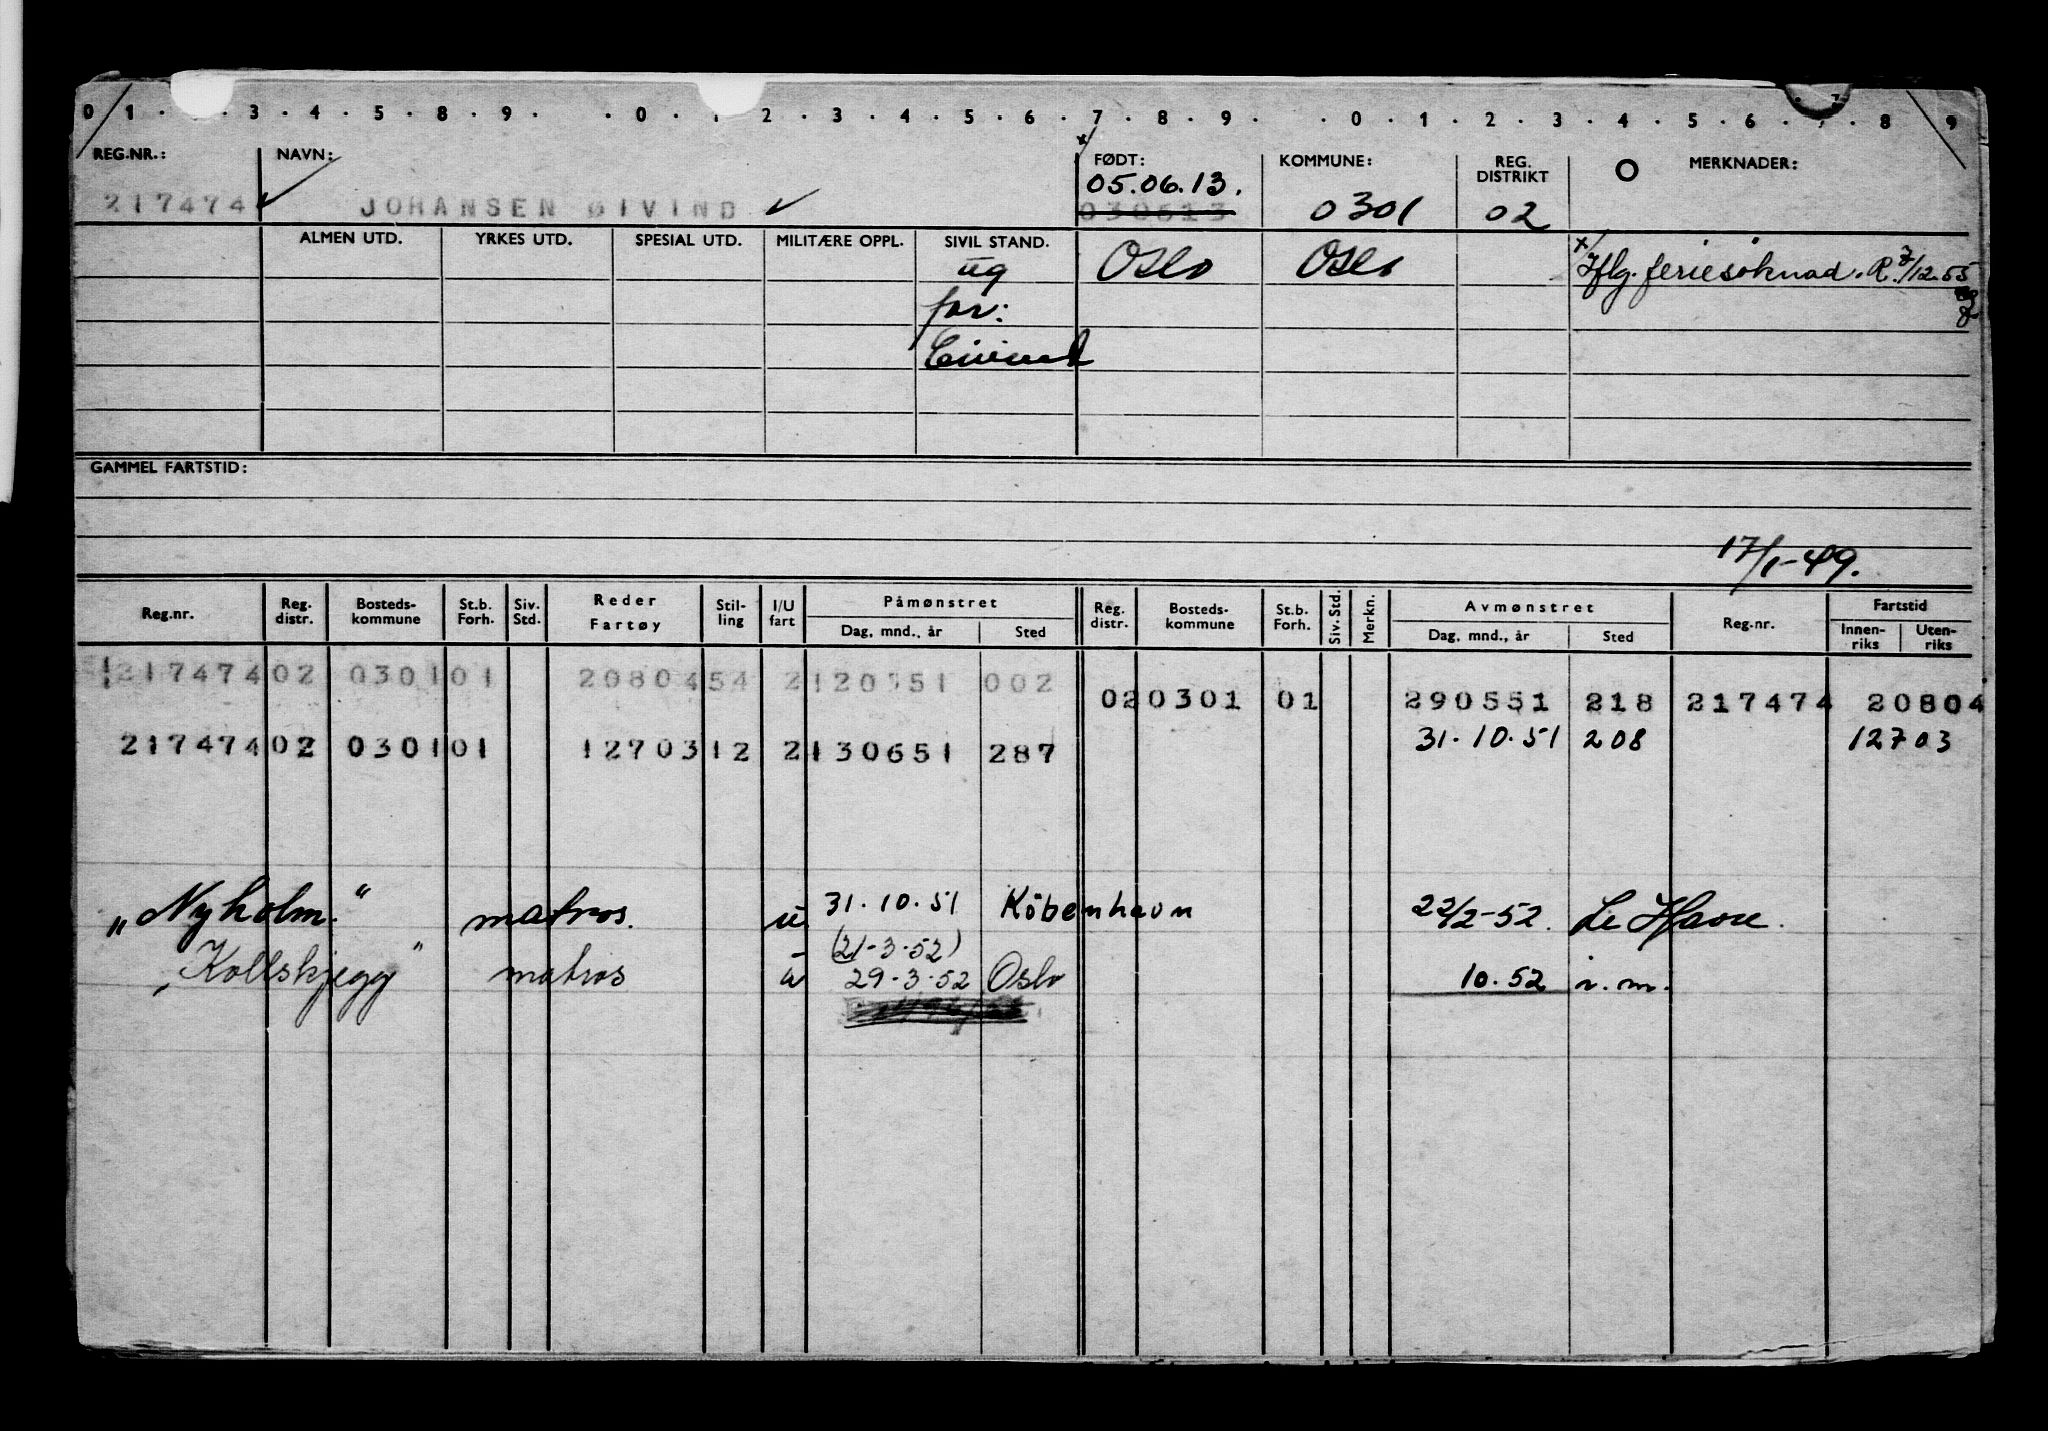 0 1 . . . 3 . 4 . 5 . 8 . 9 . . 0 . 1 . 2 . 3 . 4 . 5 . 6 . 7 . 8 . 9 . . 0 . 1 . 2 . 3 . 4 . 5 . 6 . 7 . 8 . 9
REG.NR.: NAVN: FØDT: KOMMUNE: REG. DISTRIKT MERKNADER:
05.06.13.
217474 JOHANSEN ØIVIND 030613 0301 02
ALMEN UTD. YRKES UTD. SPESIAL UTD. MILITÆRE OPPL. SIVIL STAND.
ug Oslo Oslo x/ Iflg. feriesøknad. R. 7/12.55
far:
Eivind
GAMMEL FARTSTID:
17/1-49.
Reg.nr. Reg. distr. Bosteds-kommune St.b. Forh. Siv. Std. Reder Fartøy Stil-ling I/U fart Påmønstret Reg. distr. Bosteds-kommune St.b. Forh. Siv. Std. Merkn. Avmønstret Reg.nr. Fartstid
Dag, mnd., år Sted Dag, mnd., år Sted Innen-riks Uten-riks
217474 02 0301 01 20804 54 2 120351 002
02 0301 01 290551 218 217474 20804
217474 02 0301 01 12703 12 2 130651 287 31.10.51 208 12703
"Nyholm" matros. u 31.10.51 Köbenhavn 22/2-52. Le Havre.
(21-3-52)
"Kollskjegg" matros u 29.3.52 Oslo 10.52 i.m.